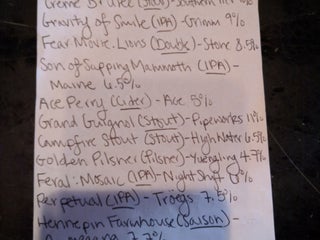 Creme Brulee (Stout)-Southern Tier
Gravity of Smile (IPA)-Grimm 9%
Fear Movie Lions (Double)-Stone 8.5%
Son of Supping Mammoth (IPA)-
Maine 6.5%
Ace Perry (Cider)-Ace 5%
Grand Guignol (Stout)-Pipeworks 11%
Campfire Stout (Stout)-High Water 6.5%
Golden Pilsner (Pilsner)-Yuengling 4.7%
Feral: Mosaic (IPA)-Night Shift 8%
Perpetual (IPA)-Tröegs 7.5%
Hennepin Farmhouse (Saison)-
7.7%